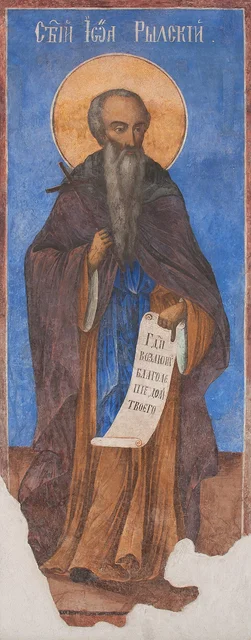 С҃ТЫЙ ІѠ҃А РЫЛСКІЙ.
ГД҃И
ВОЗЛЮБИ
БЛАГОЛЕ
ПІЕ ДОМ
ТВОЕГО